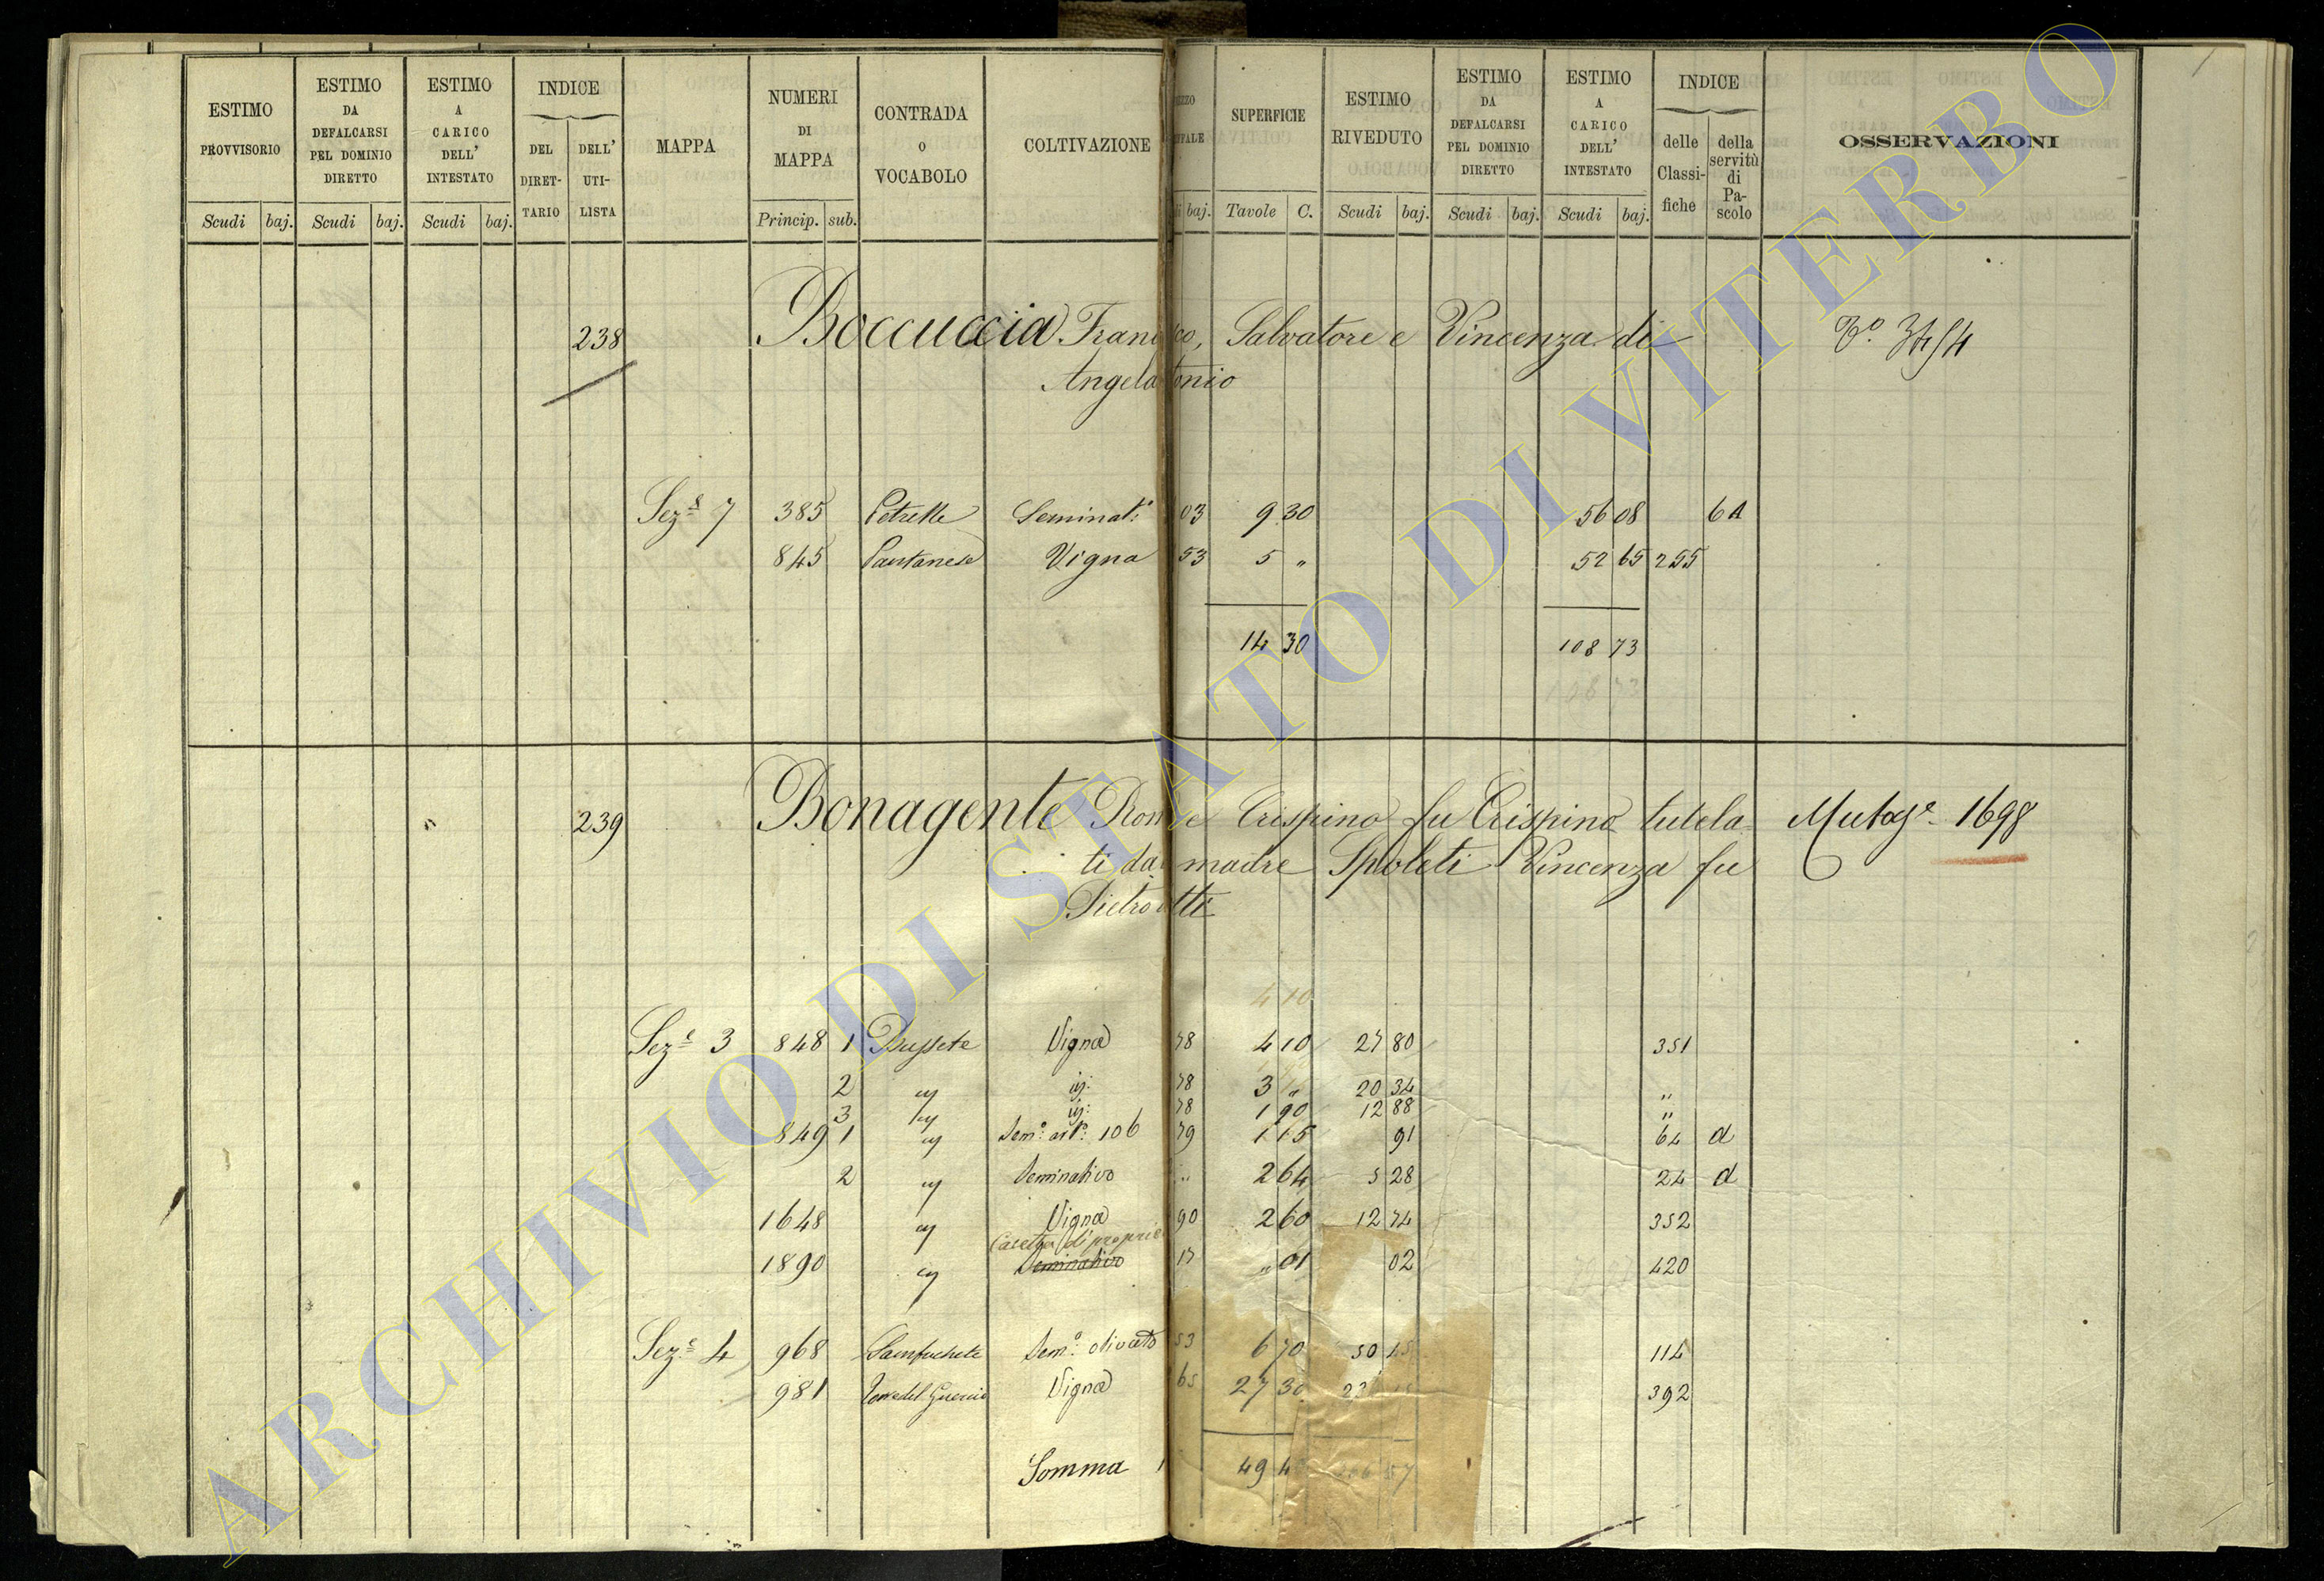 ESTIMO PROVVISORIO
Scudi baj.
ESTIMO DA DEFALCARSI PEL DOMINIO DIRETTO
Scudi baj.
ESTIMO A CARICO DELL' INTESTATO
Scudi baj.
INDICE
DEL DIRET-TARIO
DELL' UTI-LISTA
MAPPA
NUMERI DI MAPPA
Princip. sub.
CONTRADA O VOCABOLO
COLTIVAZIONE
baj.
SUPERFICIE
Tavole C.
ESTIMO RIVEDUTO
Scudi baj.
ESTIMO DA DEFALCARSI PEL DOMINIO DIRETTO
Scudi baj.
ESTIMO A CARICO DELL' INTESTATO
Scudi baj.
INDICE
delle Classi-fiche
della servitù di Pa-scolo
OSSERVAZIONI
238 Boccuccia Salvatore e Vincenza di
Sez.e 7 385 Petrelle Seminat.o 03 9 30 56 08 6 A
845 Pantanese Vigna 53 5 " 52 65 255
14 30 108 73
108 73
239 Bonagente Crispino fu Crispino tutela Mutag.e 1698
ti madre Spoleti Vincenza fu
4 10
Sez.e 3 848 1 Bussete Vigna 78 4 10 27 80 351
2 " id: 78 3 " 20 34 "
3 " id: 78 1 90 12 88 "
849 1 " Sem.o 106 79 1 15 91 64 d
2 " Seminativo " 2 64 5 28 24 d
1648 " Vigna 90 2 60 12 74 352
Casetta di proprie
1890 " Seminativo 17 " 01 02 420
Sez.e 4 968 Sem.o olivato 53 6 70 50 45 114
981 Vigna 65 27 30 392
Somma 49
ARCHIVIO DI STATO DI VITERBO